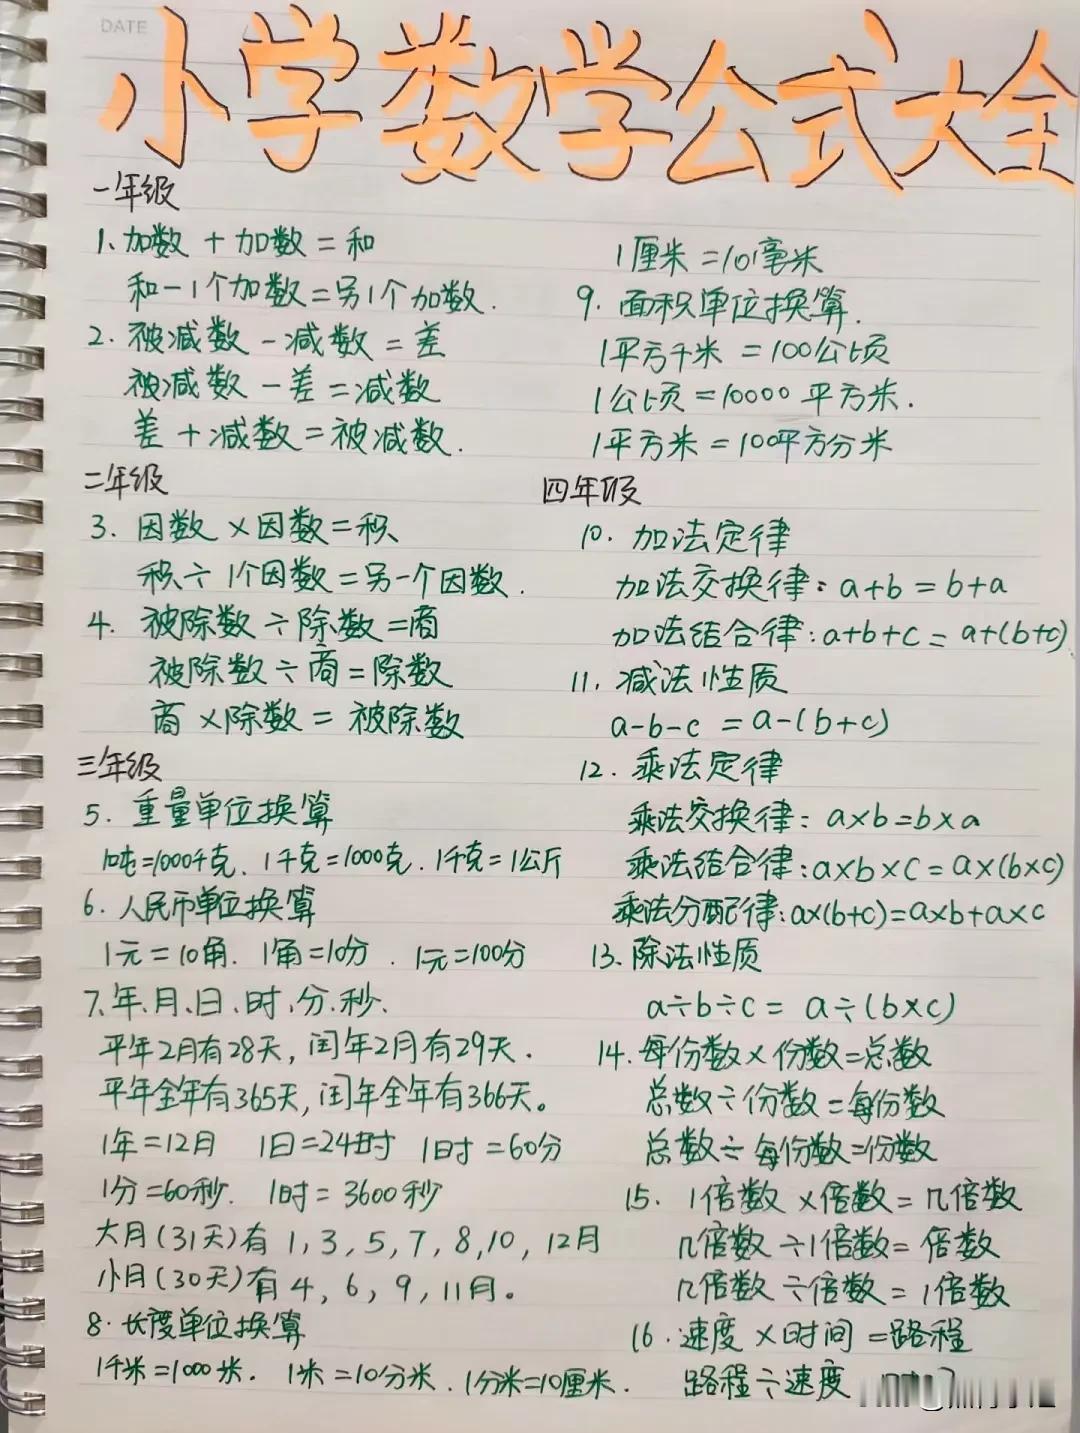 DATE
小学数学公式大全
一年级
1、加数+加数=和
和-1个加数=另1个加数.
2.被减数-减数=差
被减数-差=减数
差+减数=被减数.
二年级
3.因数×因数=积
积÷1个因数=另一个因数.
4.被除数÷除数=商
被除数÷商=除数
商×除数=被除数
三年级
5.重量单位换算
1吨=1000千克.1千克=1000克.1千克=1公斤
6.人民币单位换算
1元=10角.1角=10分.1元=100分
7、年、月、日、时、分、秒.
平年2月有28天,闰年2月有29天.
平年全年有365天,闰年全年有366天。
1年=12月 1日=24时 1时=60分
1分=60秒.1时=3600秒
大月(31天)有1,3,5,7,8,10,12月
小月(30天)有4,6,9,11月。
8.长度单位换算
1千米=1000米.1米=10分米.1分米=10厘米.
1厘米=10毫米
9.面积单位换算.
1平方千米=100公顷
1公顷=10000平方米.
1平方米=100平方分米
四年级
10.加法定律
加法交换律:a+b=b+a
加法结合律:a+b+c=a+(b+c)
11.减法性质
a-b-c=a-(b+c)
12.乘法定律
乘法交换律:a×b=b×a
乘法结合律:a×b×c=a×(b×c)
乘法分配律:a×(b+c)=a×b+a×c
13.除法性质
a÷b÷c=a÷(b×c)
14.每份数×份数=总数
总数÷份数=每份数
总数÷每份数=份数
15.1倍数×倍数=几倍数
几倍数÷1倍数=倍数
几倍数÷倍数=1倍数
16.速度×时间=路程
路程÷速度